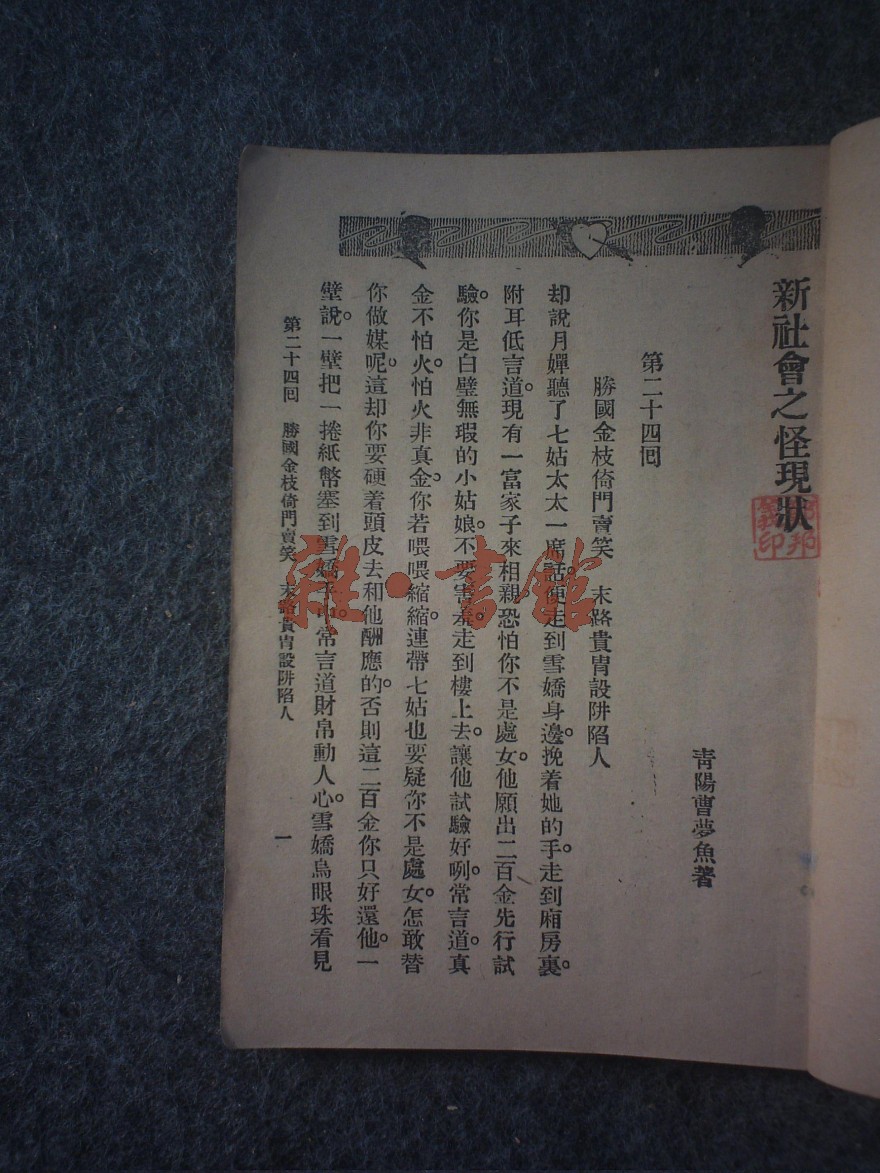 新社會之怪現狀
青陽曹夢魚著
第二十四回
勝國金枝倚門賣笑　末路貴胄設阱陷人
却說月嬋聽了七姑太太一席話。便走到雪嬌身邊。挽着她的手。走到廂房裏。
附耳低言道。現有一富家子來相親。恐怕你不是處女。他願出二百金先行試
驗。你是白璧無瑕的小姑娘。不要害羞。走到樓上去。讓他試驗好咧。常言道。真
金不怕火。怕火非真金。你若喂喂縮縮。連帶七姑也要疑你不是處女。怎敢替
你做媒呢。這却你要硬着頭皮去和他酬應的。否則這二百金你只好還他。一
壁說。一壁把一捲紙幣塞到雪嬌手常言道財帛動人心。雪嬌烏眼珠看見
第二十四回　勝國金枝倚門賣笑　末路貴胄設阱陷人
一
雜·書館